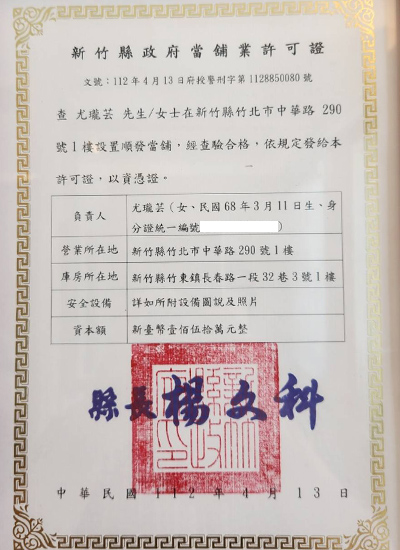 新竹縣政府當舖業許可證
文號：112年4月13日府授警刑字第1128850080號
查 尤瓏芸 先生/女士在新竹縣竹北市中華路 290
號1樓設置順發當舖，經查驗合格，依規定發給本
許可證，以資憑證。
負責人
尤瓏芸（女、民國68年3月11日生、身
分證統一編號
營業所在地
新竹縣竹北市中華路290號1樓
庫房所在地
新竹縣竹東鎮長春路一段32巷3號1樓
安全設備
詳如所附設備圖說及照片
資本額
新臺幣壹佰伍拾萬元整
縣長楊文科
中華民國112年4月13日